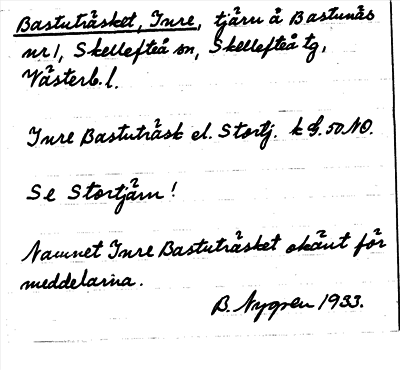 Bastuträsket, Inre, tjärn å Bastunäs
nr 1, Skellefteå sn, Skellefteå tg,
Västerb. l.
Inre Bastuträsk el. Stortj. k G. 50 NO.
Se Stortjärn!
Namnet Inre Bastuträsket okänt för
meddelarna.
B. Nygren 1933.